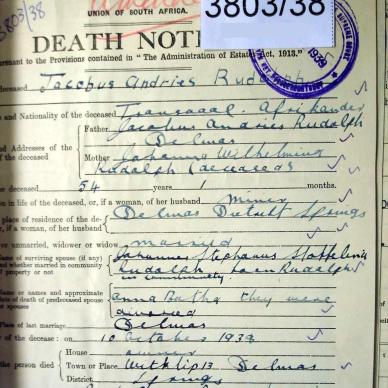 3803/38
3803/38
UNION OF SOUTH AFRICA.
DEATH NOT
rsuant to the Provisions contained in "The Administration of Estates Act, 1913."
deceased Jacobus Andries Rudolph
and Nationality of the deceased Transvaal. Afrikander
Father Jacobus Andries Rudolph
nd Addresses of the Delmas
of the deceased Mother Johanna Wilhelmina
Rudolph (deceased)
e deceased 54 years 1 months.
on in life of the deceased, or, if a woman, of her husband miner
place of residence of the de- Delmas District Springs
or, if a woman, of her husband
or unmarried, widower or widow married
Names of surviving spouse (if any) Johannes Stephanus
nd whether married in community Rudolph born Rudolph
of property or not in community
ame or names and approximate anna Botha they were
ate of death of predeceased spouse divorced
or spouses
Place of last marriage Delmas
of the decease: on 10 October 1938
House owner
the person died Town or Place Witklip 13 Delmas
District Springs